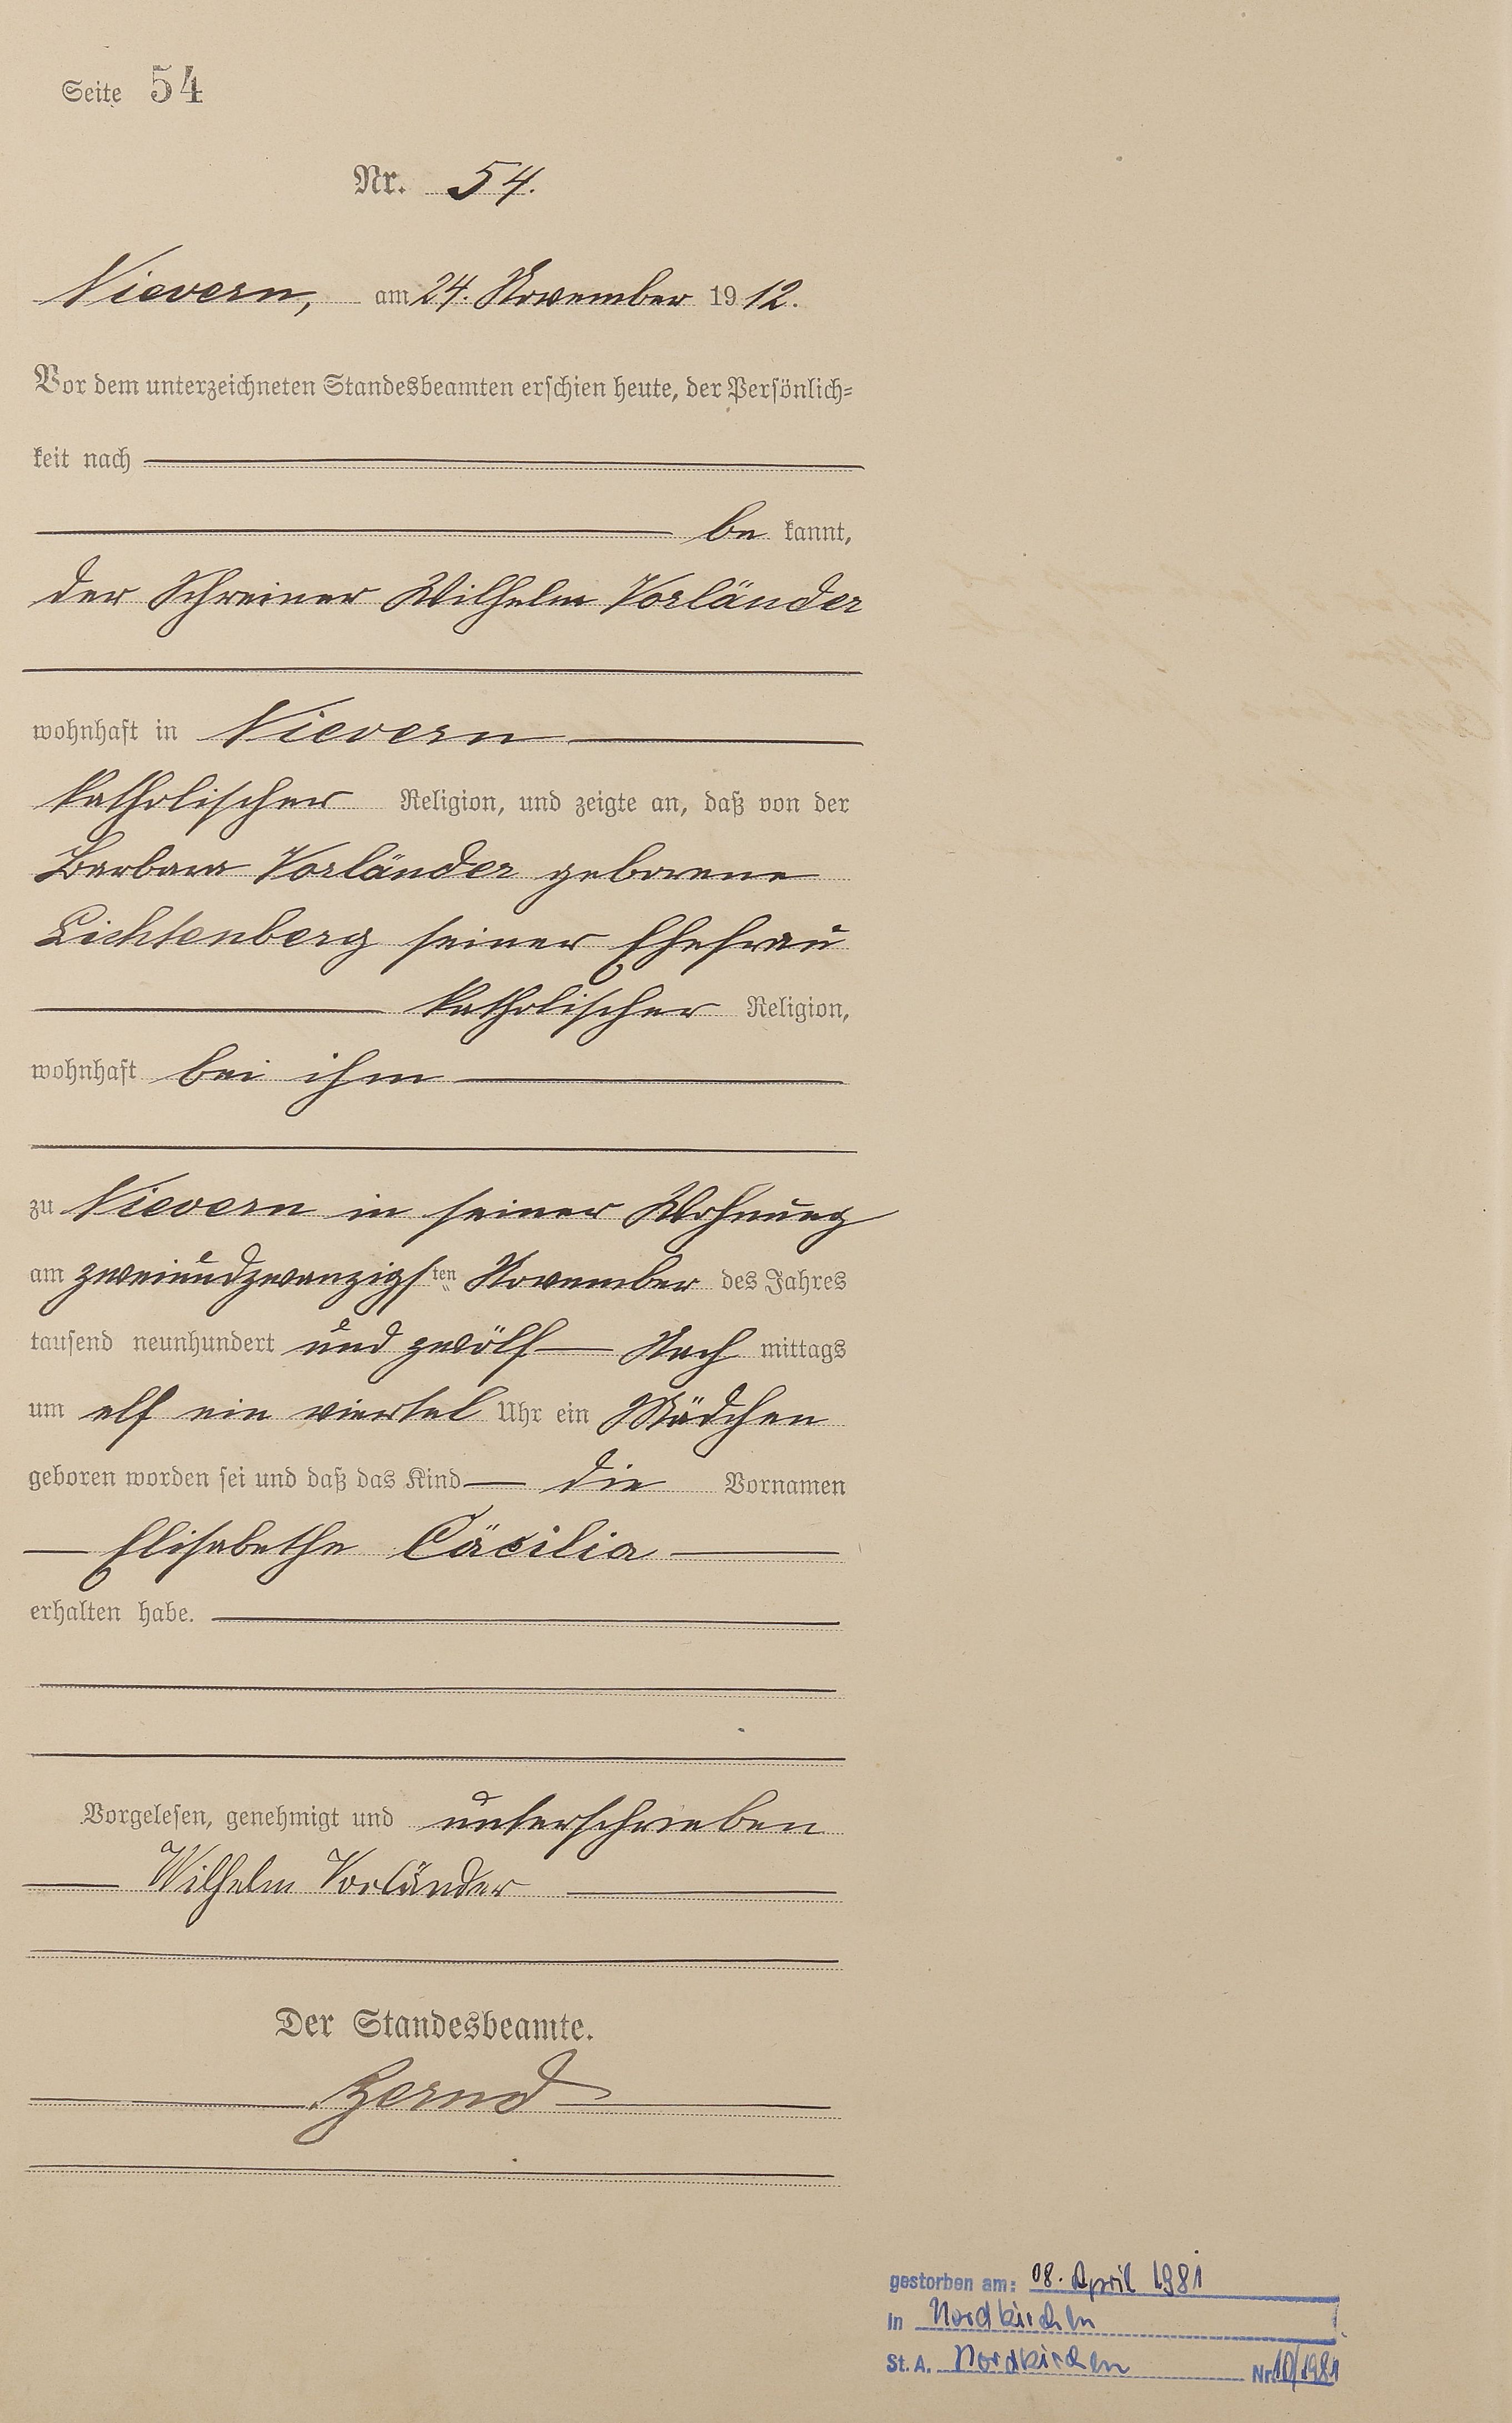 Seite 54
Nr. 54.
Nievern, am 24. November 1912.
Vor dem unterzeichneten Standesbeamten erschien heute, der Persönlich-
keit nach
be kannt,
der Schreiner Wilhelm Vorländer
wohnhaft in Nievern
katholischer Religion, und zeigte an, daß von der
Barbara Vorländer geborene
Lichtenberg seiner Ehefrau
katholischer Religion,
wohnhaft bei ihm
zu Nievern in seiner Wohnung
am zweiundzwanzigsten November des Jahres
tausend neunhundert und zwölf Nach mittags
um elf ein viertel Uhr ein Mädchen
geboren worden sei und daß das Kind die Vornamen
Elisabethe Cäcilia
erhalten habe.
Vorgelesen, genehmigt und unterschrieben
Wilhelm Vorländer
Der Standesbeamte.
gestorben am: 08. April 1981
in Nordkirchen
St. A. Nordkirchen Nr. 10/1981